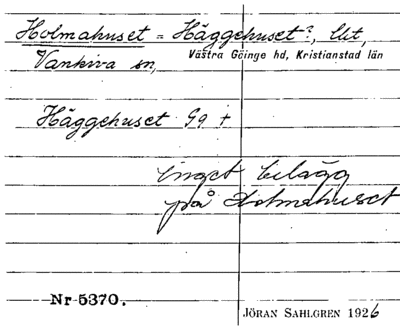 Holmahuset = Häggehuset?, Ut,
Vankiva sn, Västra Göinge hd, Kristianstad län
Häggehuset Gg +
inget belägg
på Holmahuset
Nr 5370.
JÖRAN SAHLGREN 1926